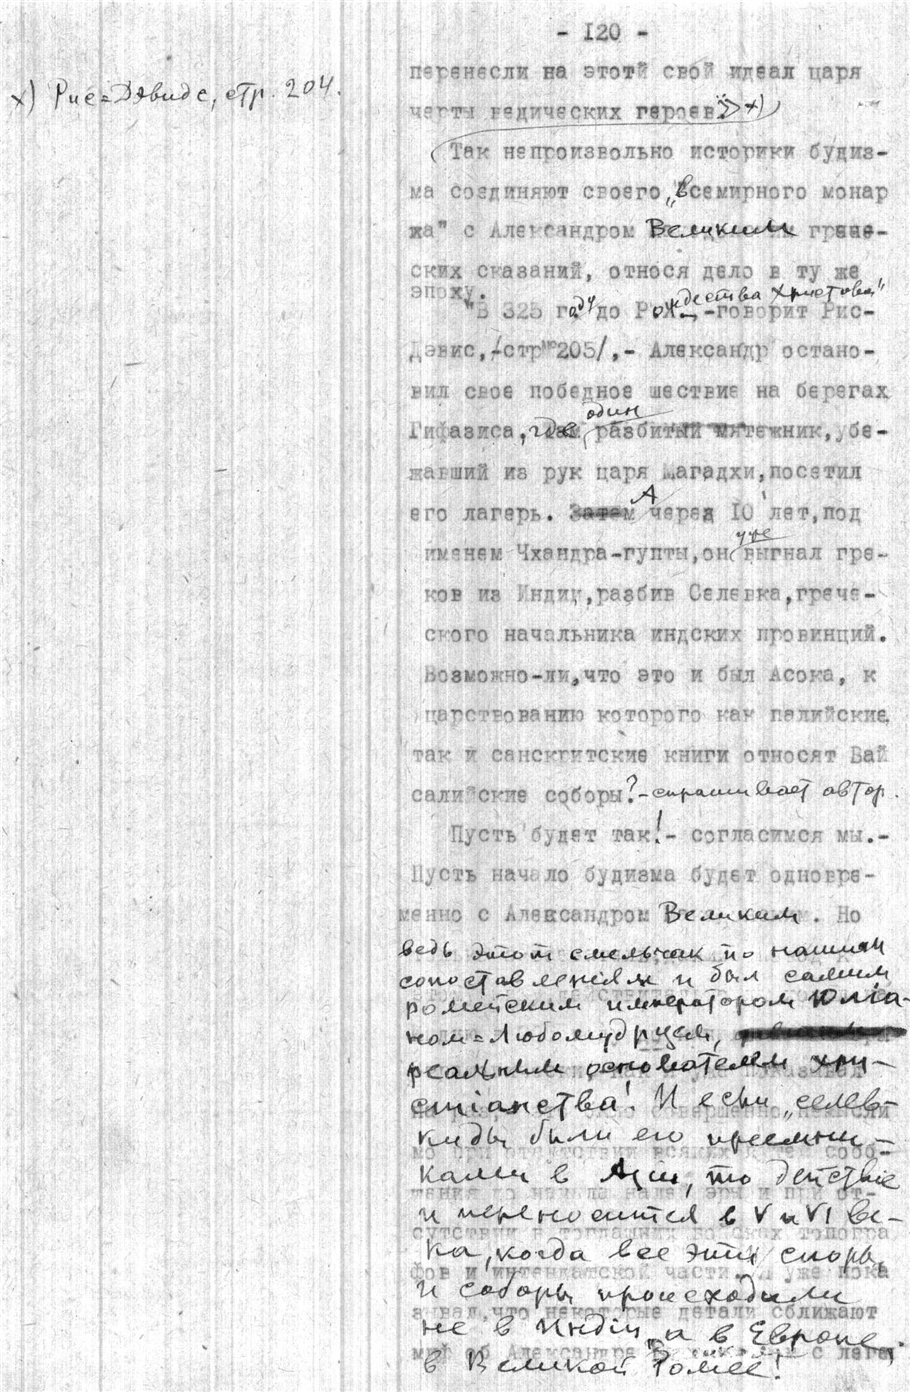 - I20 -
х) Рис=Дэвидс, стр. 204.
перенесли на этотй свой идеал царя
черты ведических героев."> х)
Так непроизвольно историки будиз-
ма соединяют своего „всемирного монар
жа" с Александром Великим грече-
ских сказаний, относя дело в ту же
эпоху.
"В 325 году до Рождества Христова" -говорит Рис-
Дэвис,/стр 205/,- Александр остано-
вил свое победное шествие на берегах
Гифазиса, где один разбитый мятежник, убе-
жавший из рук царя Магадхи,посетил
его лагерь. Затем А через IO лет,под
именем Чхандра-гупты,он уже выгнал гре-
ков из Индии,разбив Селевка,грече-
ского начальника индских провинций.
Возможно-ли,что это и был Асока, к
царствованию которого как палийские,
так и санскгитские книги относят Вай
салийские соборы?-спрашивает автор.
Пусть будет так!- согласимся мы.-
Пусть начало будизма будет одновре-
менно с Александром Великим. Но
ведь этот смельчак по нашим
сопоставленіям и был самим
ромейским императором Юліа-
ном=Любомудрцем,
реальным основателем хри-
стіанства! И если „селев-
киды были его преемни-
ками в Азіи, то действіе
и переносится в V и VI ве-
ка, когда все эти споры
и соборы происходили
не в Индіи, а в Европе,
в Великой Ромее!